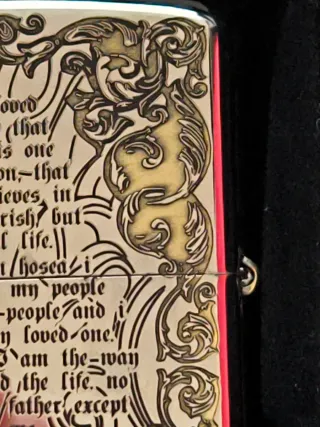 oved
that
is one
on-that
ieves in
rish but
l life.
hosea i
my people
-people and i
y loved one.
am the-way
d the life. no
father, except